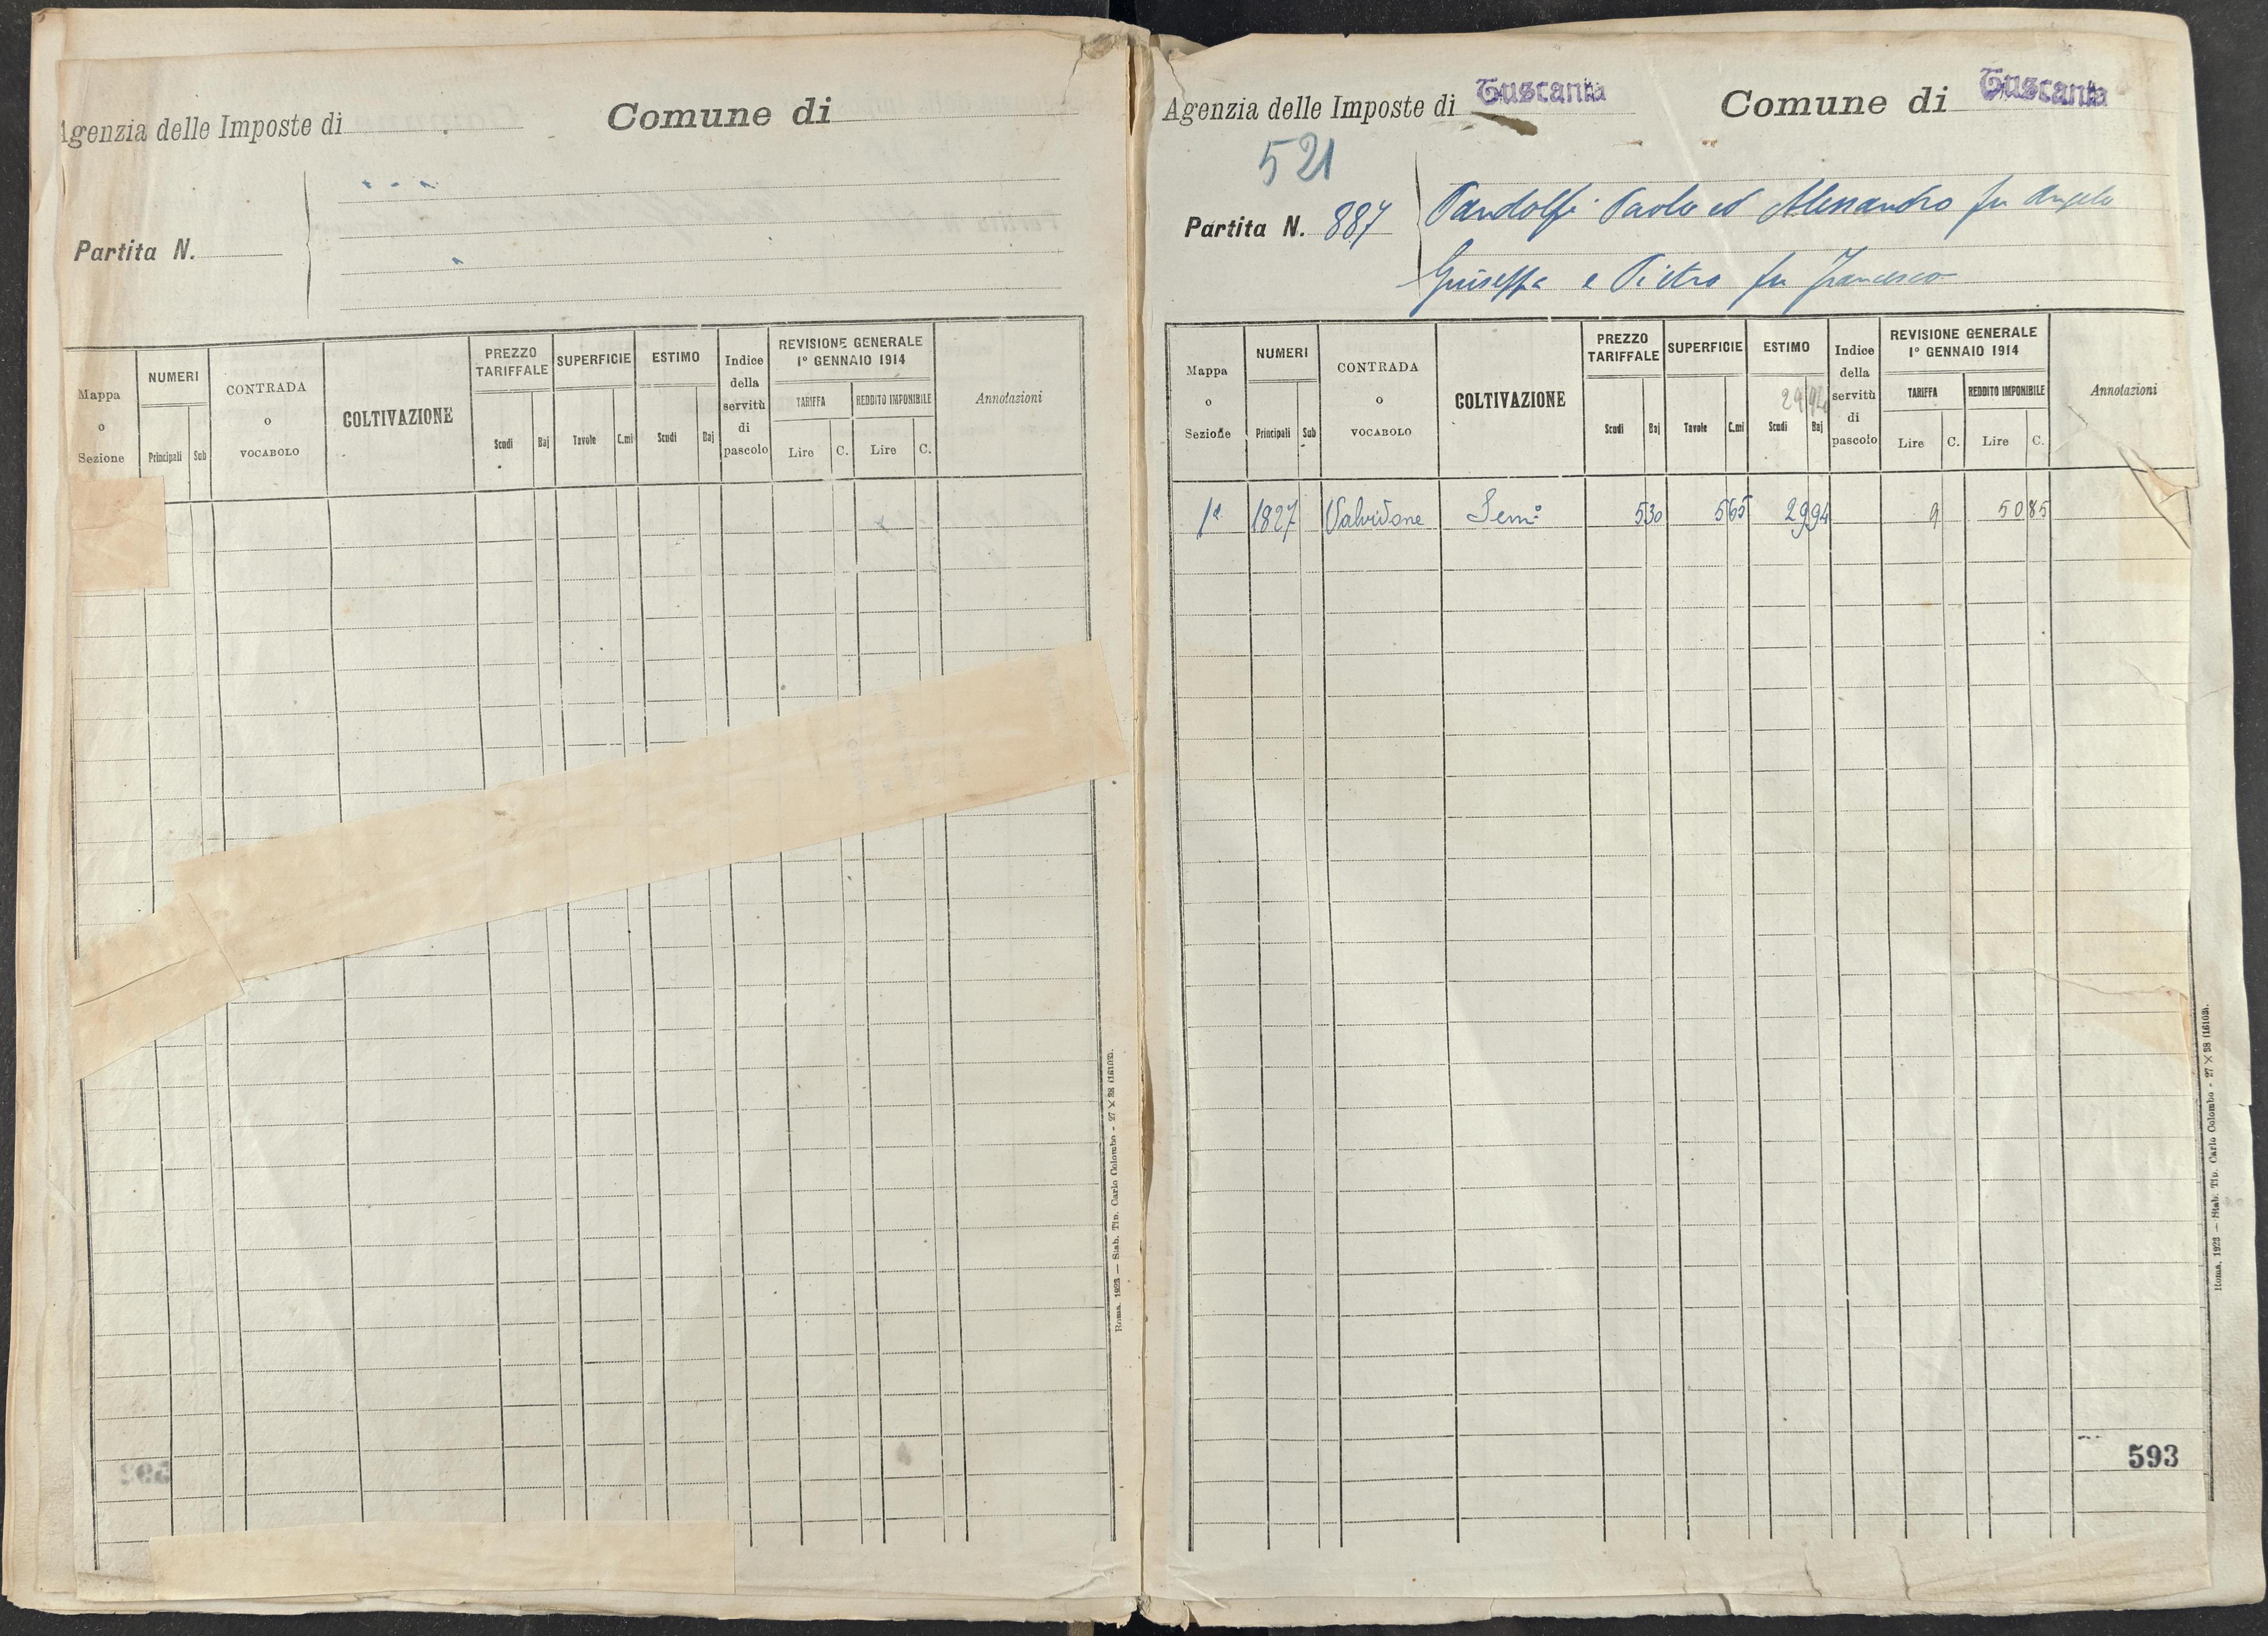 Agenzia delle Imposte di
Comune di
Partita N.
Mappa o Sezione
NUMERI
Principali Sub
CONTRADA o VOCABOLO
COLTIVAZIONE
PREZZO TARIFFALE
Scudi Baj
SUPERFICIE
Tavole C.mi
ESTIMO
Scudi Baj
Indice della servitù di pascolo
REVISIONE GENERALE
1° GENNAIO 1914
TARIFFA
Lire C.
REDDITO IMPONIBILE
Lire C.
Annotazioni
Roma, 1923 — Stab. Tip. Carlo Colombo - 27 × 38 (16103).
Agenzia delle Imposte di Tuscania
Comune di Tuscania
521
Partita N. 887
Pandolfi Paolo ed Alessandro fu Angelo
Giuseppa e Pietro fu Francesco
Mappa o Sezione
NUMERI
Principali Sub
CONTRADA o VOCABOLO
COLTIVAZIONE
PREZZO TARIFFALE
Scudi Baj
SUPERFICIE
Tavole C.mi
ESTIMO
29 94
Scudi Baj
Indice della servitù di pascolo
REVISIONE GENERALE
1° GENNAIO 1914
TARIFFA
Lire C.
REDDITO IMPONIBILE
Lire C.
Annotazioni
1ª 1827 Valvidone Sem.º 5 30 5 65 29 94 9 50 85
593
Roma, 1923 — Stab. Tip. Carlo Colombo - 27 × 38 (16103).